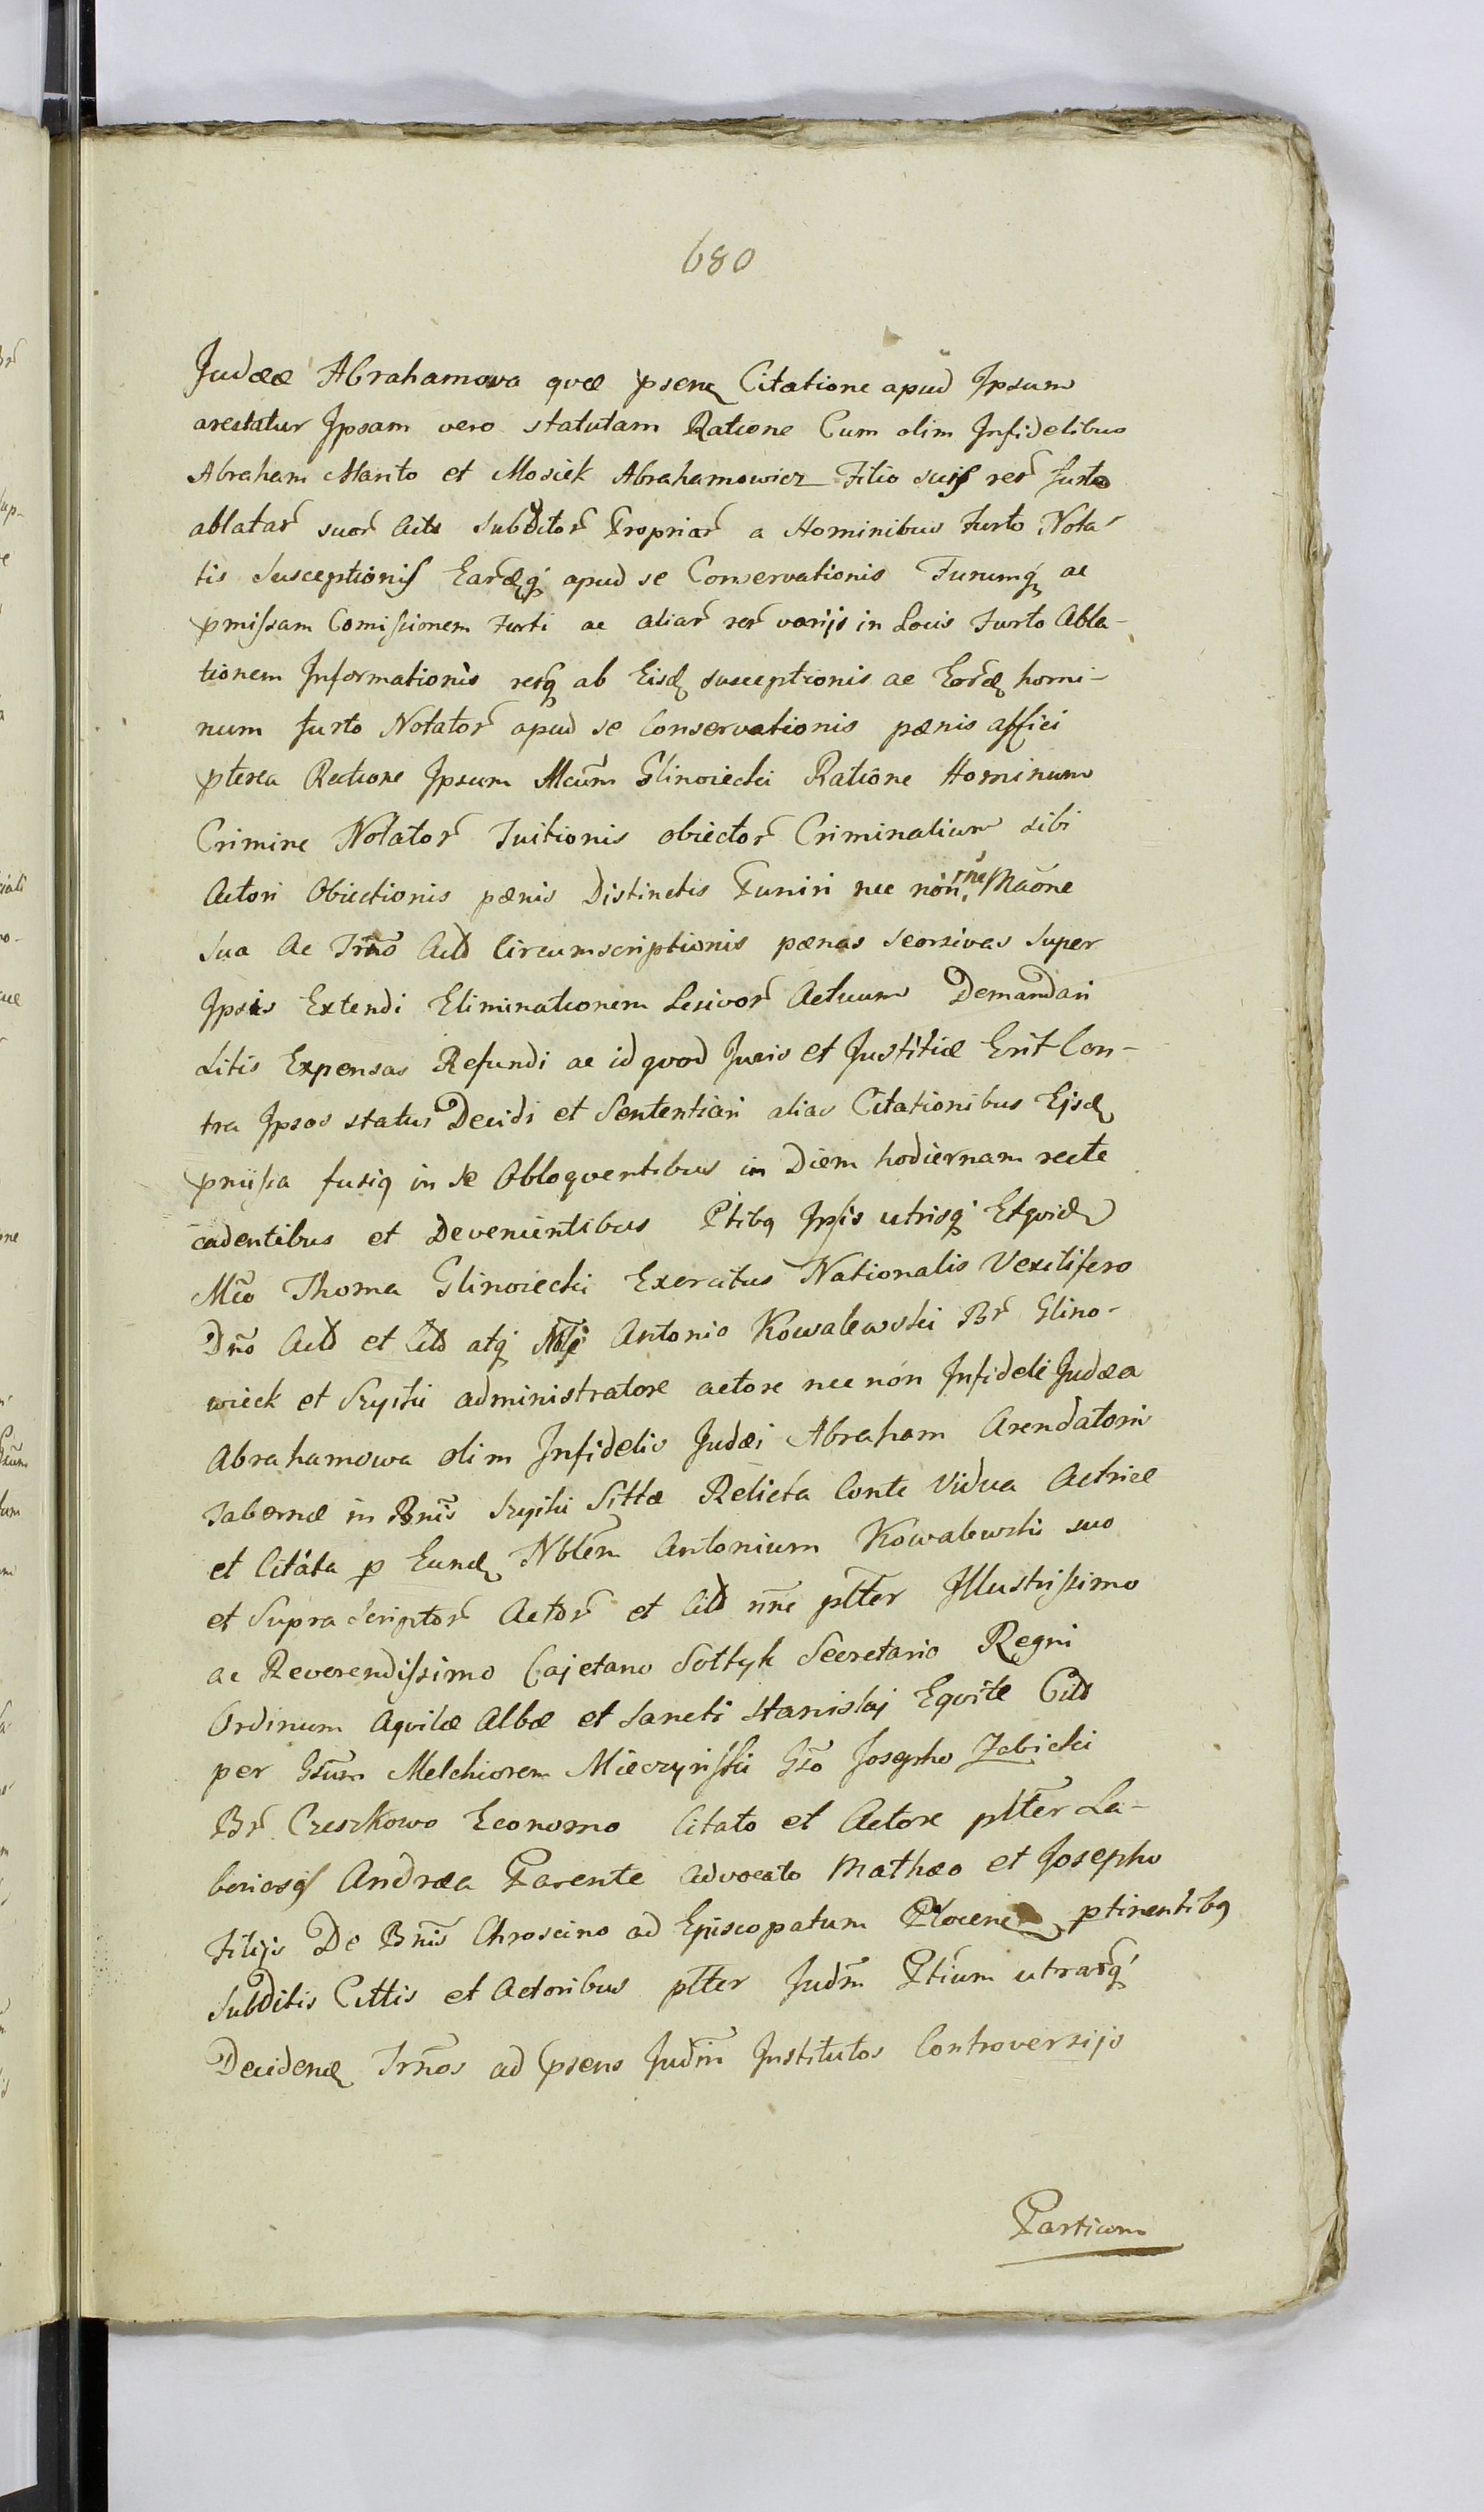 680
Judææ Abrahamowa quæ pseng Citatione apud Ipsum
arestatur Ipsam vero statutam Ratione Cum olim Infidelibus
Abraham Marito et Mosiek Abrahamowicz Filio suis rer̃ furto
ablatar̃ suor̃ Actt Subditor̃ Propriar̃ a Hominibus Furto Nota-
tis Susceptionis Eardq́ apud se Conservationis Furumq́ ac
pmissam Comissionem Furti ac aliar̃ rer̃ varijs in Locis Furto Abla-
tionem Informationis resq ab Eisd susceptionis ac Eord homi-
num furto Notator̃ apud se Conservationis pænis affici
pterea Ratione Ipsum Mcum̃ Glinoiecki Ratione Hominum
Crimine Notator̃ Tuitionis obiector̃ Criminalium sibi
Actori Obiectionis pænis Distinctis Puniri nec non Mãone
Sua Ac Trño Actt Circumscriptionis pænas Seorsivas Super
Ipsis Extendi Eliminationem Lesivor̃ Actuum Demandari
Litis Expensas Refundi ac id quod Juris et Justitiæ Erit Con-
tra Ipsos status Decidi et Sententiari alias Citationibus Ejsd
pmissa fusiq in se Obloquentibus in Diem hodiernam recte
cadentibus et Devenientibus Ptibq Ipsis utrisq́ Etquid
Mco Thoma Glinoiecki Exercitus Nationalis Vexilifero
Dño Actt et Citt atq́ Nob̃ Antonio Kowalewski Br̃ Glino-
wieck et Szyski administratore actore nec non Infideli Judæa
Abrahamowa olim Infidelis Judæi Abraham Arendatoris
Tabernæ in Bnis̃ Szyski Sittæ Relicta Conte Vidua Actrice
et Citata p Eund Nblem̃ Antonium Kowalewski suo
et Supra Scriptor̃ Actor̃ et Citt nne pltter Illustrissimo
ac Reverendissimo Cajetano Sołtyk Secretario Regni
Ordinum Aquilæ Albæ et Sancti Stanislaj Equite Citt
per Gsum̃ Melchiorem Mieczynski Gso Josepho Zabicki
Br̃ Czeszkowo Economo Citato et Actore pltter La-
boriosis Andræa Parente Advocato Mathæo et Josepho
Filijs De Bnis̃ Chroscino ad Episcopatum Plocen ptinentibq
Subditis Cittis et Actoribus pltter Judm̃ Ptium utrarq́
Decidend Trños ad psens Judm̃ Institutos Controversijs
Partium